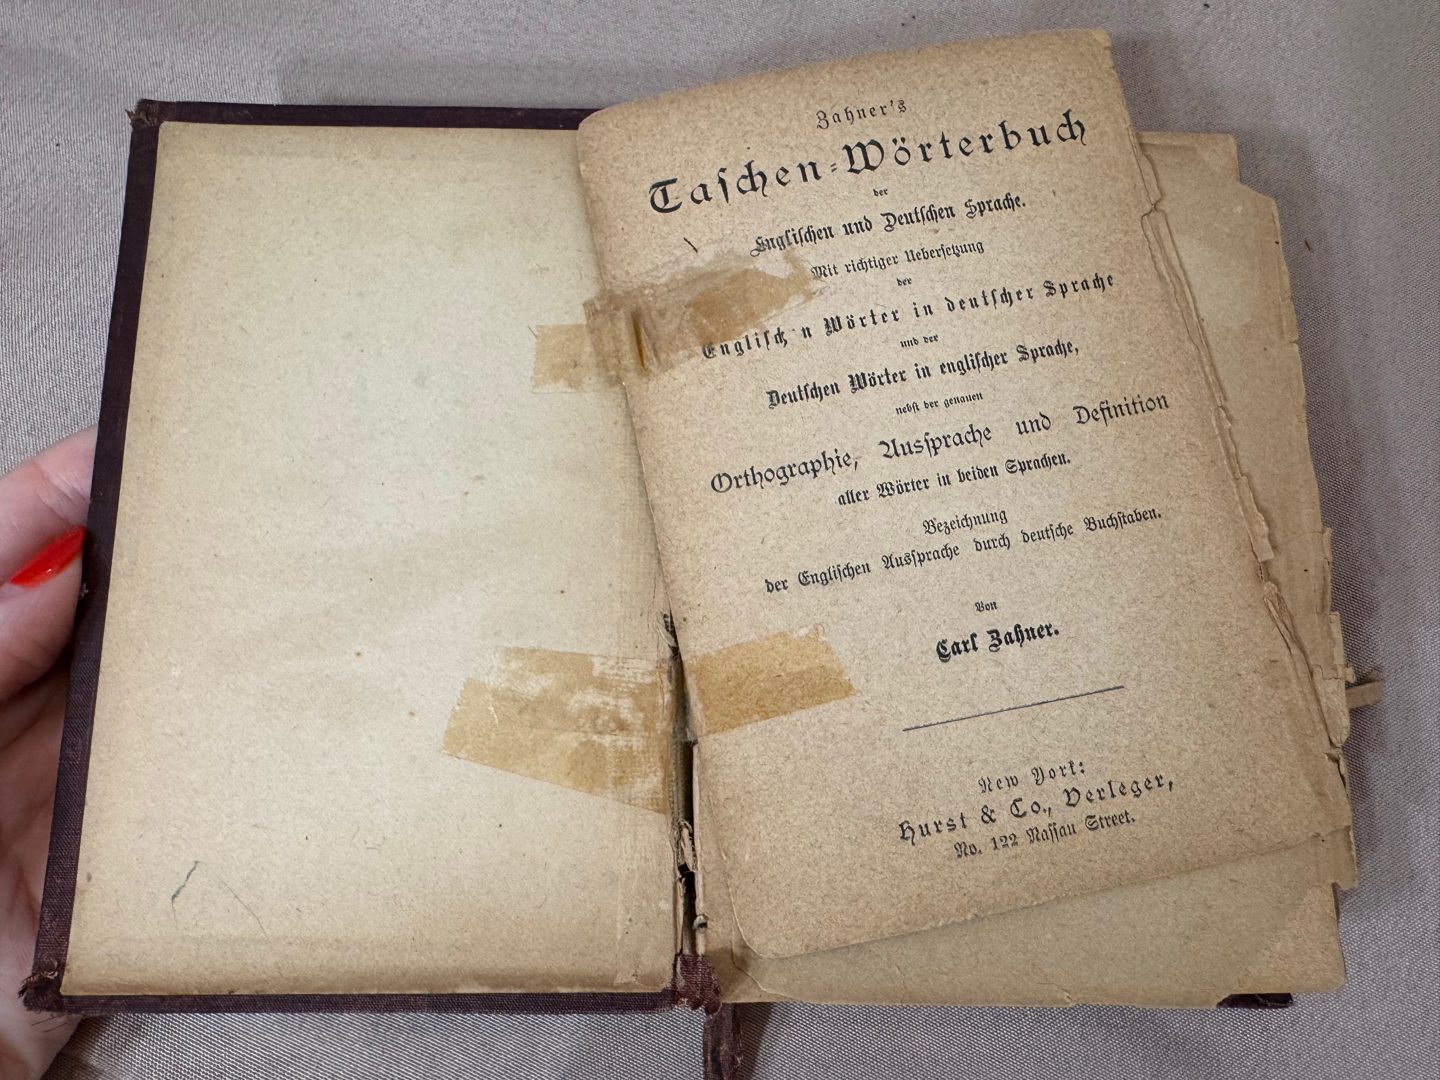 Zahner's
Taſchen⸗Wörterbuch
der
Engliſchen und Deutſchen Sprache.
Mit richtiger Ueberſetzung
der
Engliſch n Wörter in deutſcher Sprache
und der
Deutſchen Wörter in engliſcher Sprache,
nebſt der genauen
Orthographie, Ausſprache und Definition
aller Wörter in beiden Sprachen.
Bezeichnung
der Engliſchen Ausſprache durch deutſche Buchſtaben.
Von
Carl Zahner.
New York:
Hurst & Co., Verleger,
No. 122 Naſſau Street.